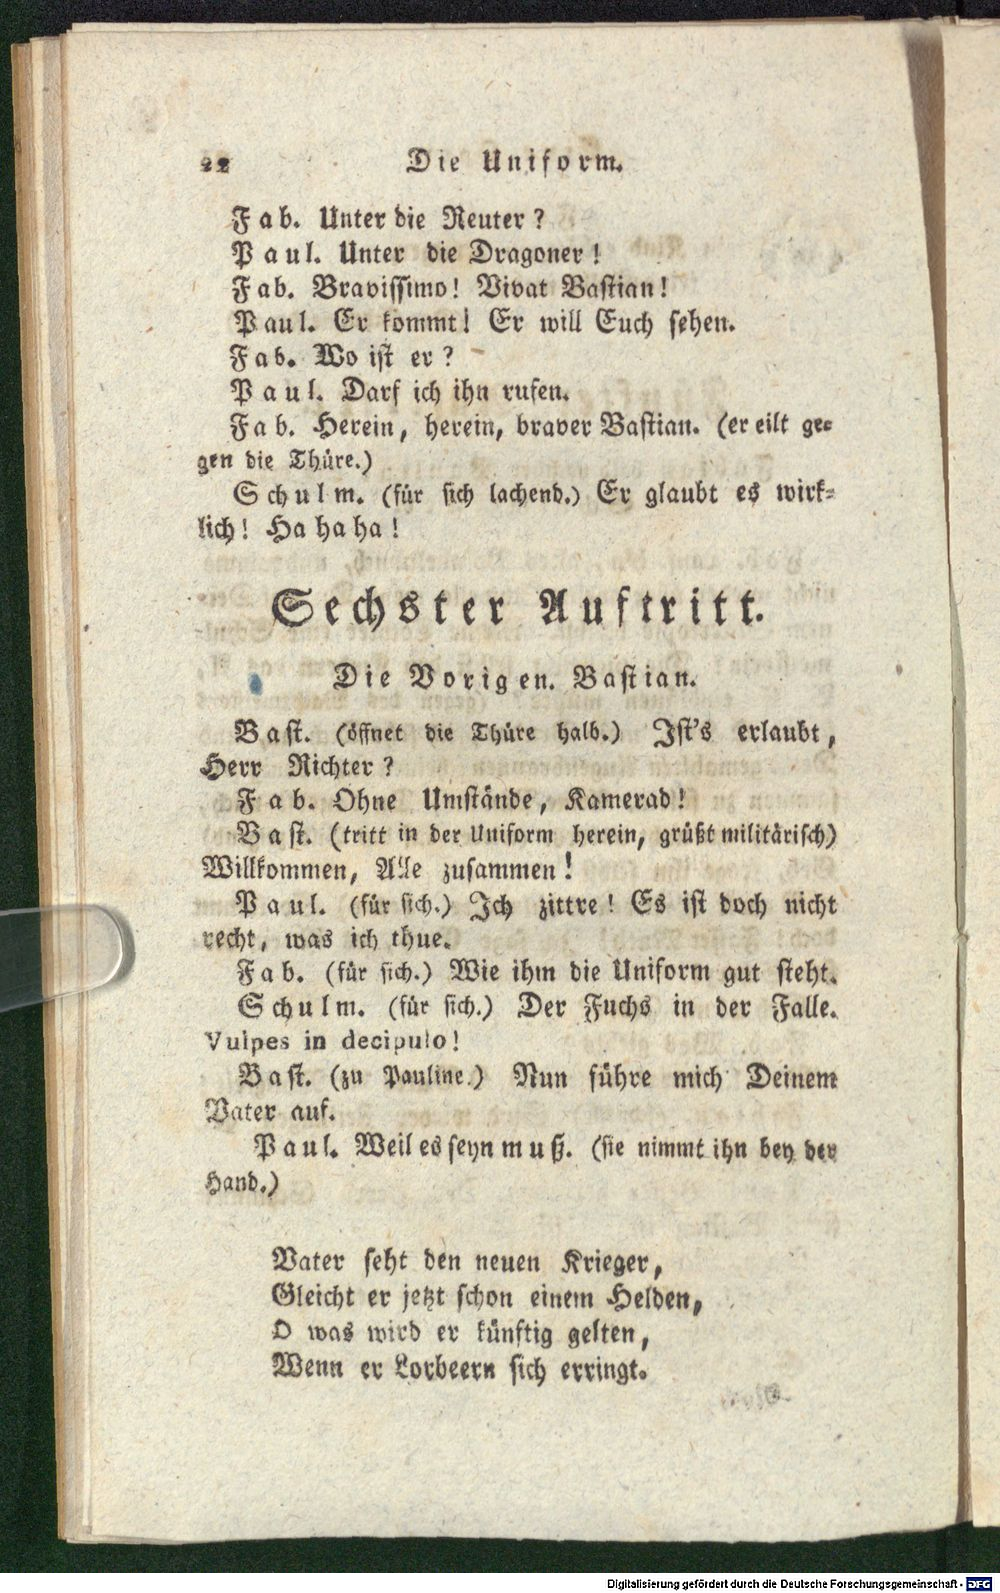 22 Die Uniform.
Fab. Unter die Reuter?
Paul. Unter die Dragoner!
Fab. Bravissimo! Vivat Bastian!
Paul. Er kommt! Er will Euch sehen.
Fab. Wo ist er?
Paul. Darf ich ihn rufen.
Fab. Herein, herein, braver Bastian. (er eilt ge-
gen die Thüre.)
Schulm. (für sich lachend.) Er glaubt es wirk-
lich! Ha ha ha!
Sechster Auftritt.
Die Vorigen. Bastian.
Bast. (öffnet die Thüre halb.) Ist's erlaubt,
Herr Richter?
Fab. Ohne Umstände, Kamerad!
Bast. (tritt in der Uniform herein, grüßt militärisch)
Willkommen, Alle zusammen!
Paul. (für sich.) Ich zittre! Es ist doch nicht
recht, was ich thue.
Fab. (für sich.) Wie ihm die Uniform gut steht.
Schulm. (für sich.) Der Fuchs in der Falle.
Vulpes in decipulo!
Bast. (zu Pauline.) Nun führe mich Deinem
Vater auf.
Paul. Weil es seyn muß. (sie nimmt ihn bey der
Hand.)
Vater seht den neuen Krieger,
Gleicht er jetzt schon einem Helden,
O was wird er künftig gelten,
Wenn er Lorbeern sich erringt.
Digitalisierung gefördert durch die Deutsche Forschungsgemeinschaft - DFG